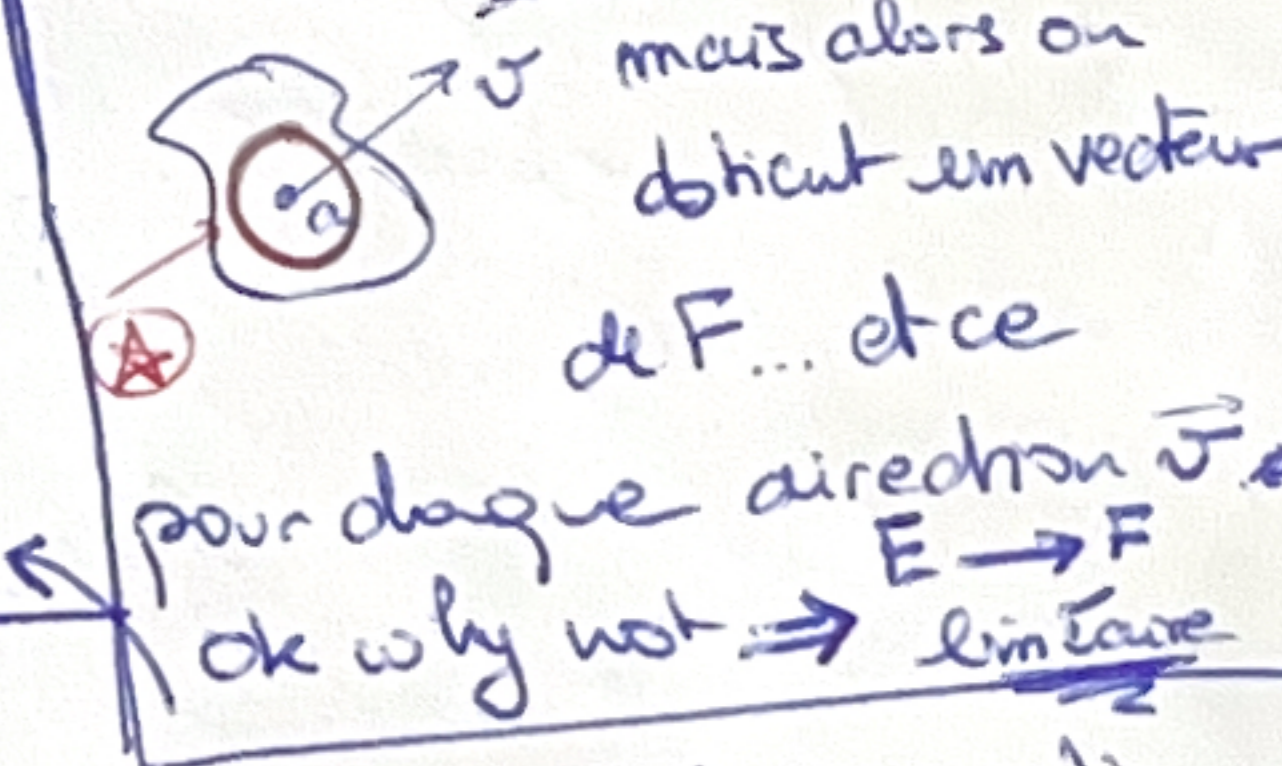 v mais alors on
a
obtient um vecteur
de F... et ce
pour chaque direction v
E → F
ok why not ⇒ linéaire